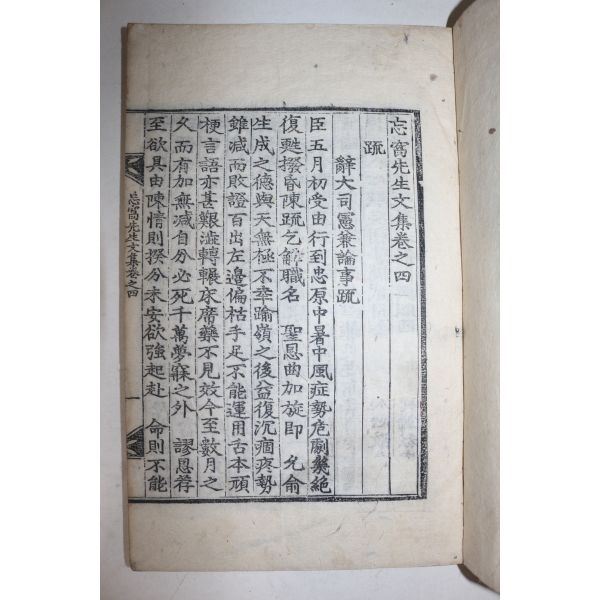 忘窩先生文集卷之四
疏
辭大司憲兼論事疏
臣五月初受由行到忠原中暑中風症勢危劇幾絶
復甦撥昏陳疏乞解職名 聖恩曲加旋即 允俞
生成之德與天無極不幸踰嶺之後益復沉痼疼勢
雖减而敗證百出左邊偏枯手足不能運用舌本頑
梗言語亦甚艱澁轉輾床席藥不見效今至數月之
久而有加無减自分必死千萬夢寐之外 謬恩荐
至欲具由陳情則揆分未安欲強起赴 命則不能
忘窩先生文集卷之四
一